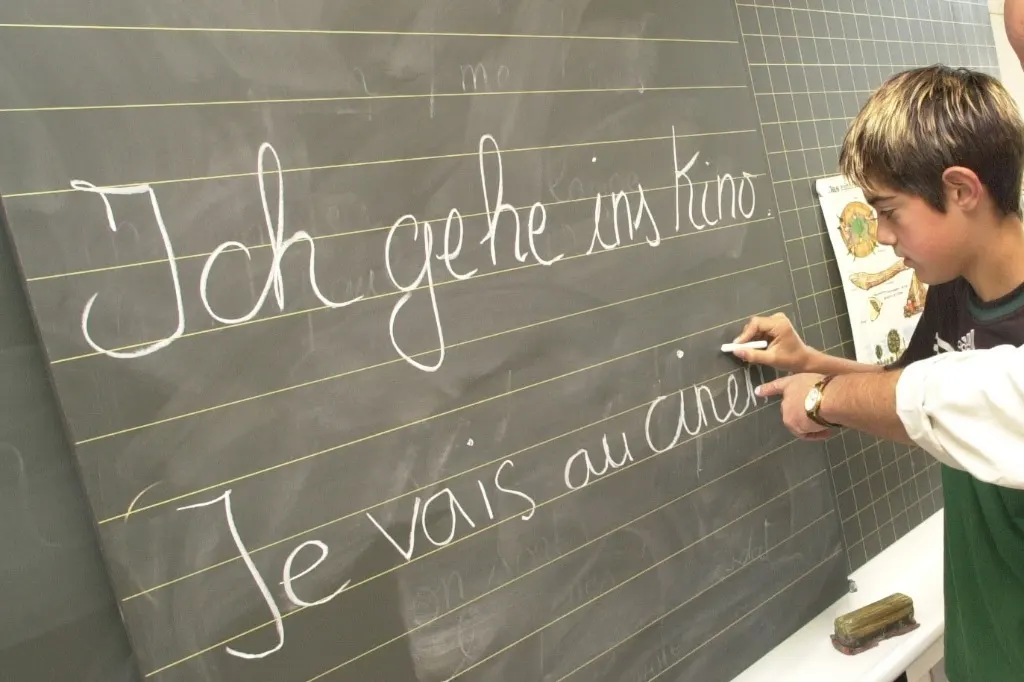 Ich gehe ins Kino.
Je vais au cinem